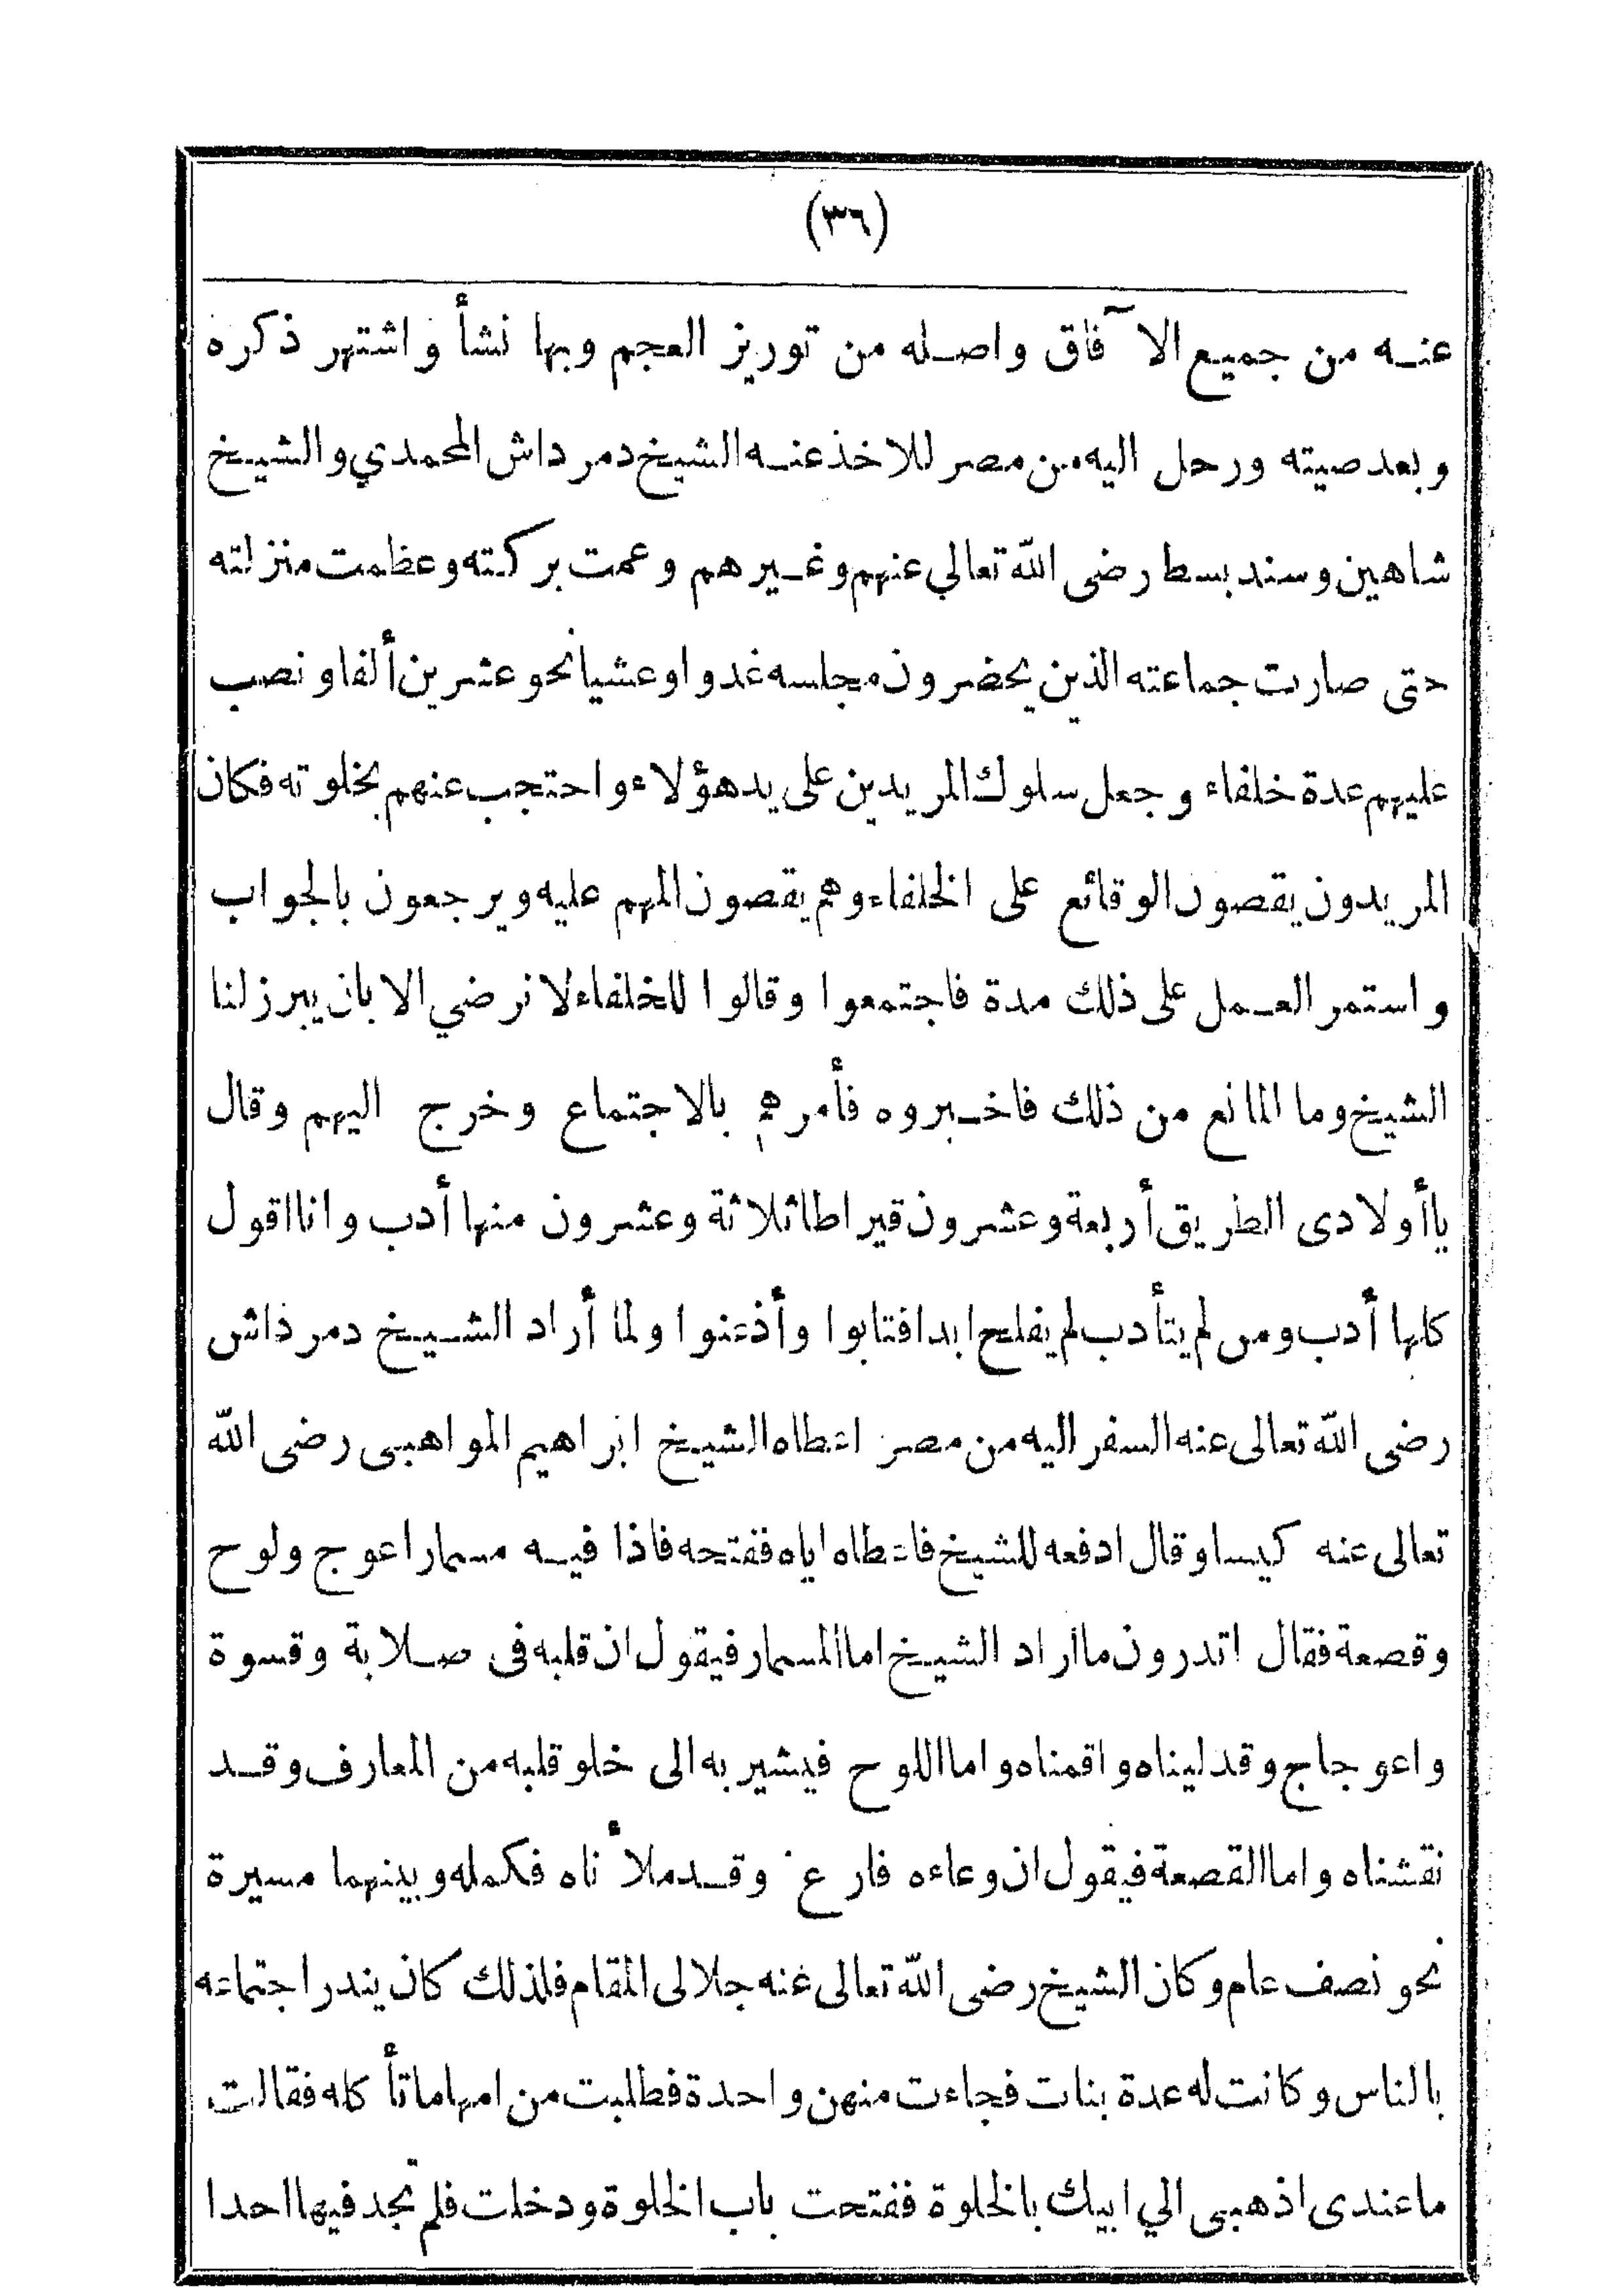 (٣٦)
عنه من جميع الآفاق واصله من توريز العجم وبها نشأ واشتهر ذكره
وبعد صيته ورحل اليه من مصر للاخذ عنه الشيخ دمرداش المحمدي والشيخ
شاهين وسند بسطا رضى الله تعالي عنهم وغيرهم وعمت بركته وعظمت منزلته
حتى صارت جماعته الذين يحضرون مجلسه غدوا وعشيا نحو عشرين ألفا ونصب
عليهم عدة خلفاء وجعل سلوك المريدين على يد هؤلاء واحتجب عنهم بخلوته فكان
المريدون يقصون الوقائع على الخلفاء وهم يقصون المهم عليه ويرجعون بالجواب
واستمر العمل على ذلك مدة فاجتمعوا وقالوا للخلفاء لا نرضي الا بان يبرز لنا
الشيخ وما المانع من ذلك فاخبروه فأمرهم بالاجتماع وخرج اليهم وقال
ياأولادى الطريق أربعة وعشرون قيراطا ثلاثة وعشرون منها أدب وانا اقول
كلها أدب ومن لم يتأدب لم يفلح ابدا فتابوا وأذعنوا ولما أراد الشيخ دمرداش
رضى الله تعالى عنه السفر اليه من مصر اعطاه الشيخ ابراهيم المواهبى رضى الله
تعالى عنه كيسا وقال ادفعه للشيخ فاعطاه اياه ففتحه فاذا فيه مسمار اعوج ولوح
وقصعة فقال اتدرون ما اراد الشيخ اما المسمار فيقول ان قلبه فى صلابة وقسوة
واعوجاج وقد ليناه واقمناه واما اللوح فيشير به الى خلو قلبه من المعارف وقد
نقشناه واما القصعة فيقول ان وعاءه فارغ وقد ملأناه فكمله وبينهما مسيرة
نحو نصف عام وكان الشيخ رضى الله تعالى عنه جلالى المقام فلذلك كان يندر اجتماعه
بالناس وكانت له عدة بنات فجاءت منهن واحدة فطلبت من امها ما تأكله فقالت
ما عندى اذهبى الي ابيك بالخلوة ففتحت باب الخلوة ودخلت فلم تجد فيها احدا